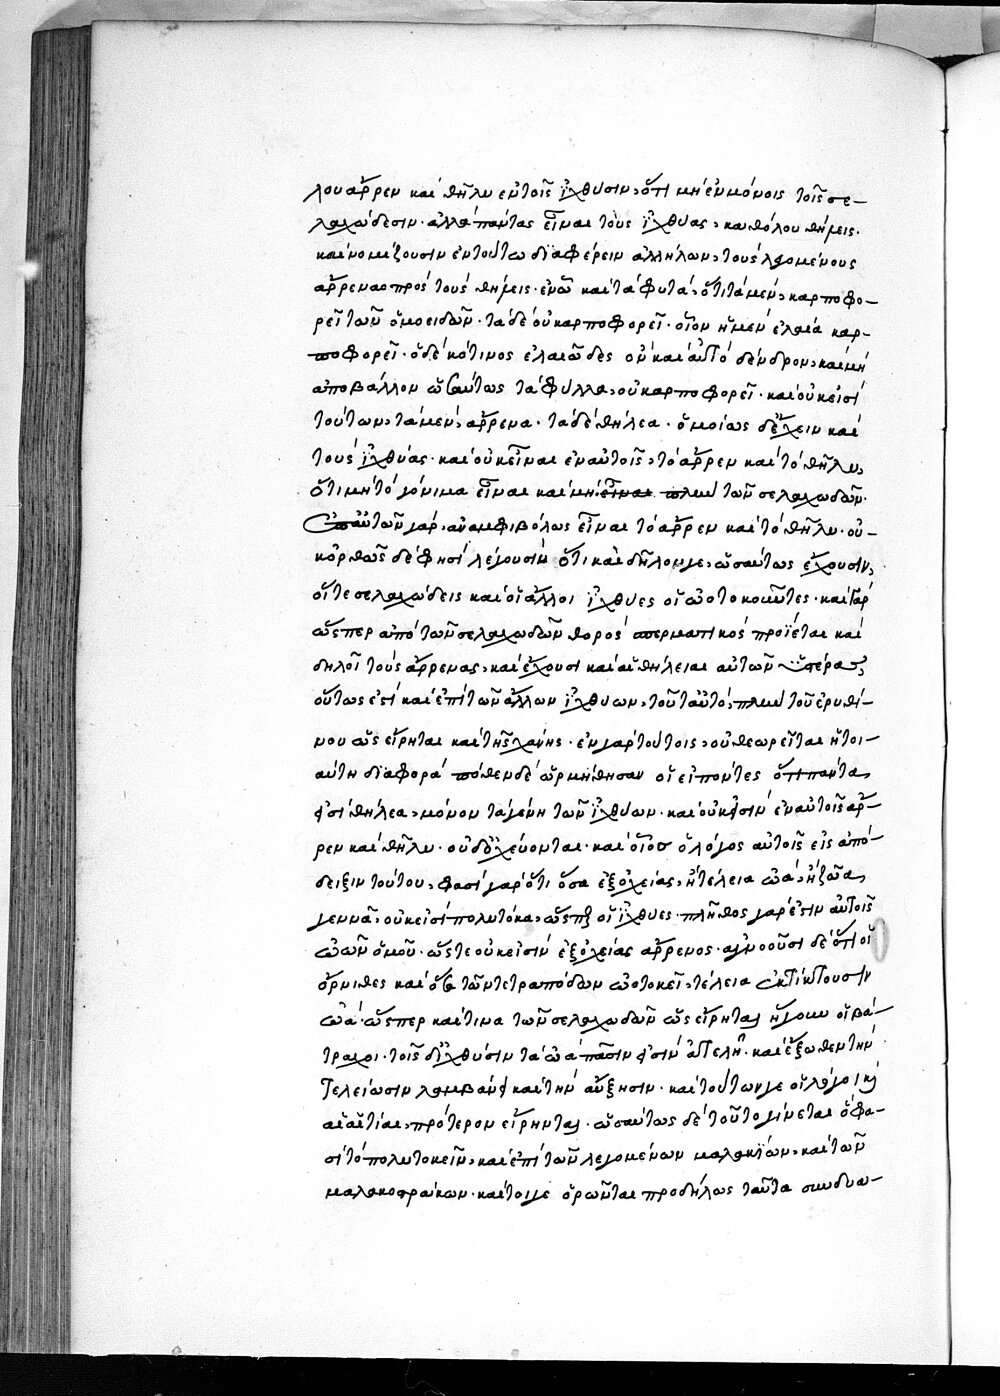 λου ἄρρεν καὶ θῆλυ ἐν τοῖς ἰχθύσιν, ὅτι μὴ ἐν μόνοις τοῖς σε-
λαχώδεσιν· ἀλλὰ πάντας εἶναι τοὺς ἰχθύας, καθόλου θήλεις·
καὶ νομίζουσιν ἐν τούτω διαφέρειν ἀλλήλων, τοὺς λεγομένους
ἄρρενας πρὸς τοὺς θήλεις· ἐν ὧ καὶ τὰ φυτά, ὅτι τὰ μὲν, καρποφο-
ρεῖ τῶν ὁμοειδῶν· τὰ δὲ οὐ καρποφορεῖ· οἷον ἡ μὲν ἐλαία καρ-
ποφορεῖ· ὁ δὲ κότινος ἐλαιῶδες ὂν καὶ αὐτὸ δένδρον, καὶ μὴ
ἀποβάλλον ὡσαύτως τὰ φύλλα, οὐ καρποφορεῖ· καὶ οὐκ εἰσὶ
τούτων, τὰ μὲν, ἄρρενα· τὰ δὲ θήλεα· ὁμοίως δὲ ἔχειν καὶ
τοὺς ἰχθύας· καὶ οὐκ εἶναι ἐν αὐτοῖς, τὸ ἄρρεν καὶ τὸ θῆλυ,
ὅτι μὴ τὸ γόνιμα εἶναι καὶ μὴ εἶναι πλὴν τῶν σελαχωδῶν·
ἐπ' αὐτῶν γὰρ, ἀναμφιβόλως εἶναι τὸ ἄρρεν καὶ τὸ θῆλυ· οὐ-
κ ὀρθῶς δέ φησι λέγουσιν ὅτι καὶ δῆλον γε, ὡσαύτως ἔχουσιν,
οἵ τε σελαχώδεις καὶ οἱ ἄλλοι ἰχθύες οἱ ὠοτοκοῦντες· καὶ γὰρ
ὥσπερ ἀπὸ τῶν σελαχωδῶν θορὸς σπερματικὸς προΐεται καὶ
δηλοῖ τοὺς ἄρρενας, καὶ ἔχουσι καὶ αἱ θήλειαι αὐτῶν ὑστέρας,
οὕτως ἐστὶ καὶ ἐπὶ τῶν ἄλλων ἰχθύων, τοῦτ' αὐτό, πλὴν τοῦ ἐρυθί-
νου ὡς εἴρηται καὶ τῆς χάνης· ἐν γὰρ τούτοις, οὐ θεωρεῖται ἡ τοι-
αύτη διαφορά πόθεν δὲ ὡρμήθησαν οἱ εἰπόντες ὅτι πάντα
εἰσὶ θήλεα, μόνον τὰ γένη τῶν ἰχθύων· καὶ οὐκ ἔστιν ἐν αὐτοῖς ἄρ-
ρεν καὶ θῆλυ· οὐδ' ὀχεύονται· καὶ οἷος ὁ λόγος αὐτοῖς εἰς ἀπό-
δειξιν τούτου, φασὶ γὰρ ὅτι ὅσα ἐξ ὀχείας, ἢ τέλεια ὠά, ἢ ζῶα,
γεννᾶ, οὐκ εἰσὶ πολυτόκα, ὥσπερ οἱ ἰχθύες· πλῆθος γάρ ἐστιν αὐτοῖς
ὠῶν ὁμοῦ· ὥστε οὐκ εἰσὶν ἐξ ὀχείας ἄρρενος· ἀγνοοῦσι δὲ ὅτι οἱ
ὄρνιθες καὶ ὅσα τῶν τετραπόδων ὠοτοκεῖ, τέλεια ἐκτίκτουσιν
ὠά· ὥσπερ καὶ τινα τῶν σελαχωδῶν ὡς εἴρηται ἤγουν οἱ βά-
τραχοι· τοῖς δ' ἰχθύσιν τὰ ὠὰ πᾶσιν εἰσὶν ἀτελῆ· καὶ ἔξωθεν τὴν
τελείωσιν λαμβάνει καὶ τὴν αὔξησιν· καὶ τούτων γε οἱ λόγοι καὶ
αἱ αἰτίαι, πρότερον εἴρηνται· ὡσαύτως δὲ τοῦτο γίνεται ὅ φα-
σι τὸ πολυτοκεῖν, καὶ ἐπὶ τῶν λεγομένων μαλακίων, καὶ τῶν
μαλακοστράκων· καὶ τοί γε ὁρῶνται προδήλως ταῦτα συνδυα-